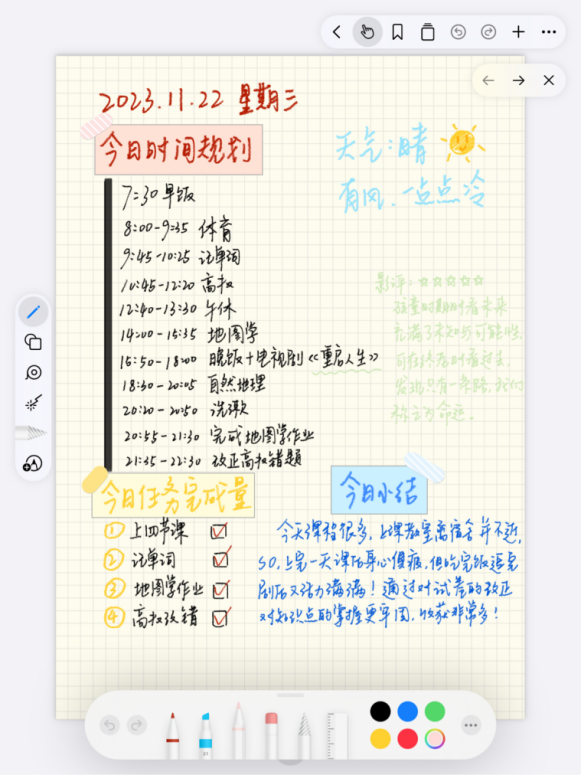 2023.11.22 星期三
今日时间规划
天气:晴
有风,一点点冷
7:30 早饭
8:00-9:35 体育
9:45-10:25 记单词
10:45-12:20 高数
12:40-13:30 午休
14:00-15:35 地图学
15:50-18:00 晚饭+电视剧《重启人生》
18:30-20:05 自然地理
20:20-20:50 洗漱
20:55-21:30 完成地图学作业
21:35-22:30 改正高数错题
影评:☆☆☆☆☆
孩童时期盼着未来
充满了未知与可能性,
可在终点时看过去,
发现只有一条路,我们
称之为命运。
今日任务完成量
① 上四节课
② 记单词
③ 地图学作业
④ 高数改错
今日小结
今天课程很多,上课教室离宿舍并不近,
so,上完一天课后身心俱疲,但吃完饭追完
剧后又活力满满!通过对试卷的改正
对知识点的掌握更牢固,收获非常多!